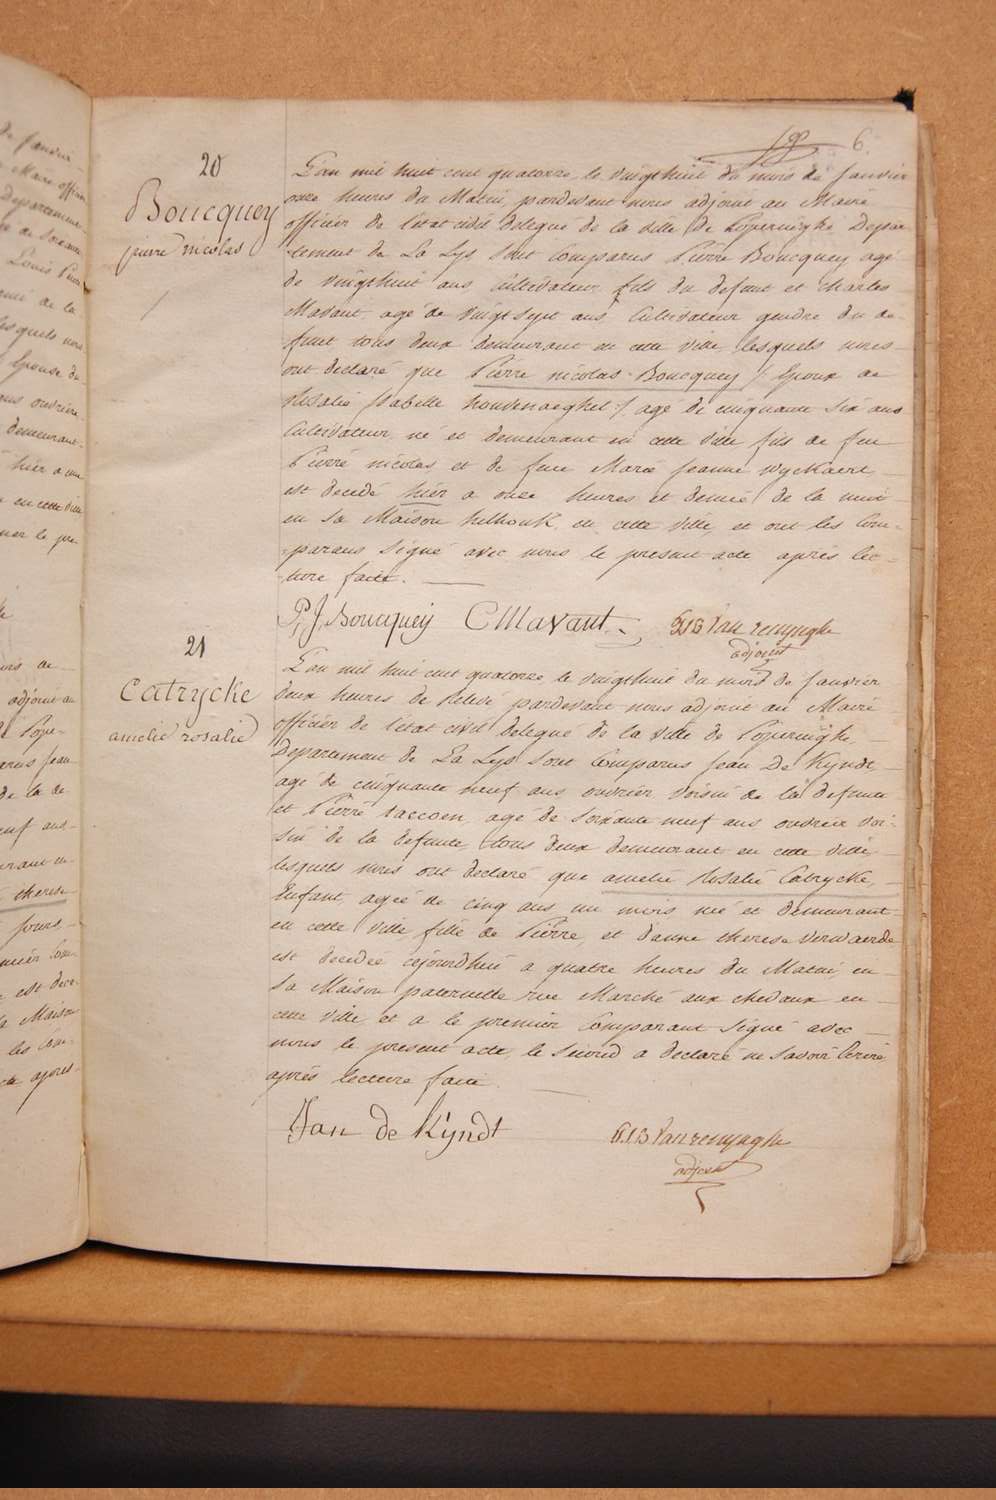 6.
20
Boucquey
pierre nicolas
L'an mil huit cent quatorze le vingthuit du mois de Janvier
onze heures du Matin, pardevant nous adjoint au Maire
officier de l'etat civil delegué de la ville de Poperinghe Depar
-tement de La Lys sont Comparus Pierre Boucquey agé
de vingthuit ans Cultivateur fils du defunt et Charles
Mavaut agé de vingt sept ans Cultivateur gendre du de-
funt tous deux demeurant en cette ville, lesquels nous
ont declaré que Pierre nicolas Boucquey / Epoux de
Rosalie Isabelle houvenaeghel / agé de cinquante six ans
Cultivateur, né et demeurant en cette ville fils de feu
Pierre nicolas et de feue Marie Jeanne Wyckaert
est decedé hier a onze heures et demie de la nuit
en sa Maison helhouk, en cette ville, et ont les Com-
-parans signé avec nous le present acte après lec-
-ture faite.
P,J,Boucquey C Mavant P.I.B Van renynghe
adjoint
21
Catrycke
amelie rosalie
L'an mil huit cent quatorze le vingthuit du mois de Janvier
deux heures de relevé pardevant nous adjoint au Maire
officier de l'etat civil delegué de la ville de Poperinghe
Departement de La Lys sont Comparus Jean De Kyndt
agé de cinquante neuf ans ouvrier voisin de la defunte
et Pierre taccoen, agé de soixante neuf ans ouvrier voi-
sin de la defunte, tous deux demeurant en cette ville
lesquels nous ont declaré que amelie Rosalie Catrycke,
Enfant, agée de cinq ans un mois née et demeurant
en cette ville fille de Pierre, et d'anne therese Verwaerde
est decedée cejourdhui a quatre heures du Matin, en
sa Maison paternelle rue Marché aux chevaux en
cette ville et a le premier Comparant signé avec
nous le present acte, le second a declaré ne savoir Ecrire
après lecture faite.
Jan de Kÿndt P.I.B Van renynghe
adjoint